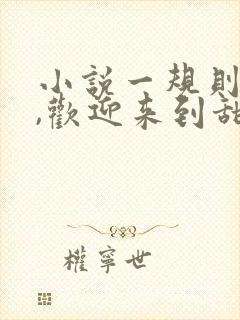 小說一規則
,歡迎来到甜
權寧世